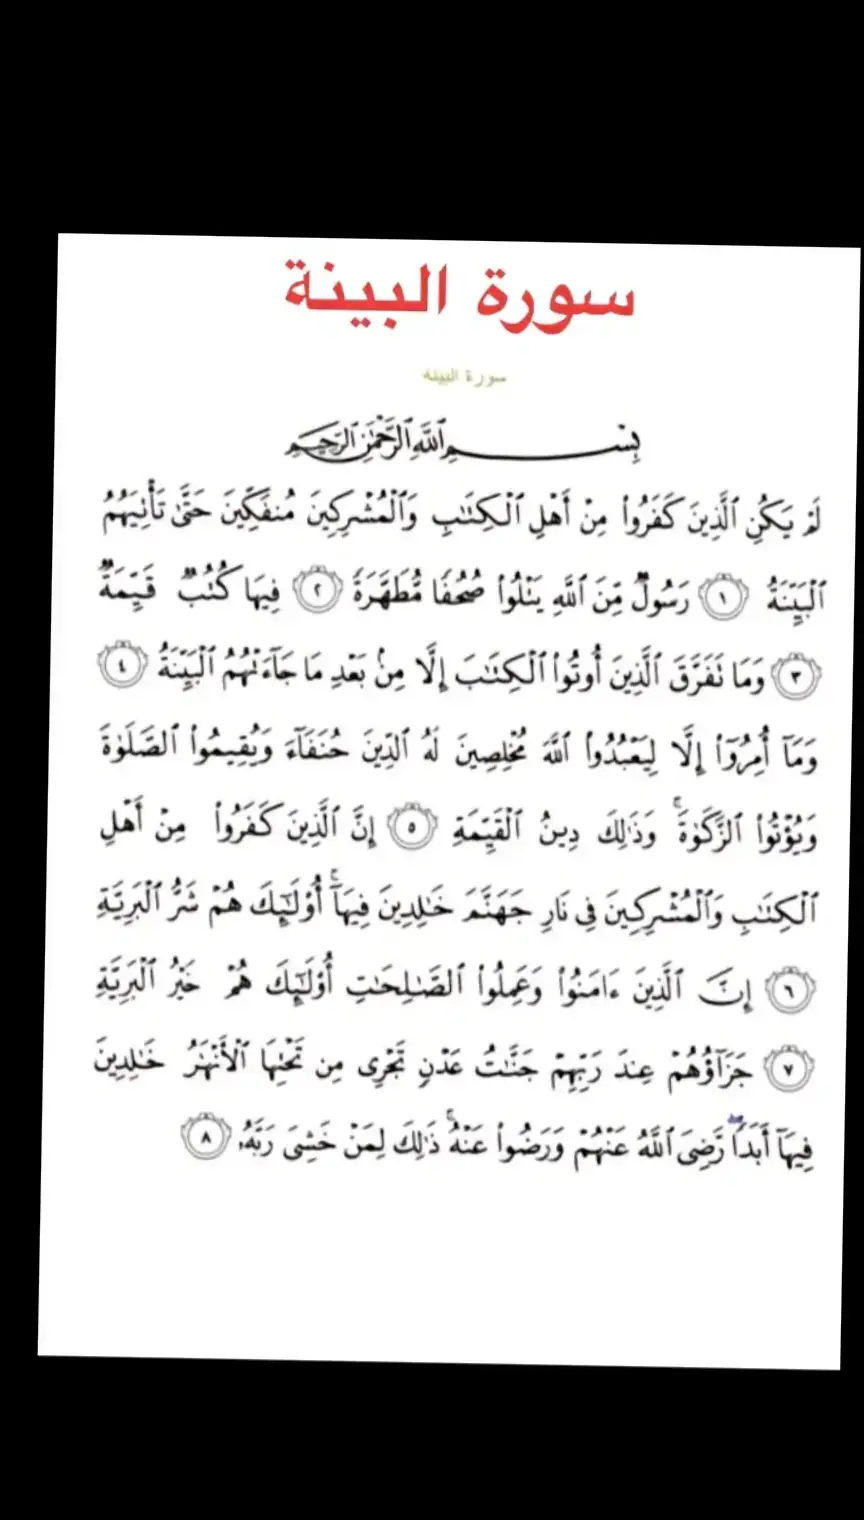 سورة البينة
سورة البينة
بِسْمِ ٱللَّهِ ٱلرَّحْمَٰنِ ٱلرَّحِيمِ
لَمْ يَكُنِ ٱلَّذِينَ كَفَرُوا۟ مِنْ أَهْلِ ٱلْكِتَٰبِ وَٱلْمُشْرِكِينَ مُنفَكِّينَ حَتَّىٰ تَأْتِيَهُمُ
ٱلْبَيِّنَةُ ١ رَسُولٌ مِّنَ ٱللَّهِ يَتْلُوا۟ صُحُفًا مُّطَهَّرَةً ٢ فِيهَا كُتُبٌ قَيِّمَةٌ
٣ وَمَا تَفَرَّقَ ٱلَّذِينَ أُوتُوا۟ ٱلْكِتَٰبَ إِلَّا مِنۢ بَعْدِ مَا جَآءَتْهُمُ ٱلْبَيِّنَةُ ٤
وَمَآ أُمِرُوٓا۟ إِلَّا لِيَعْبُدُوا۟ ٱللَّهَ مُخْلِصِينَ لَهُ ٱلدِّينَ حُنَفَآءَ وَيُقِيمُوا۟ ٱلصَّلَوٰةَ
وَيُؤْتُوا۟ ٱلزَّكَوٰةَ ۚ وَذَٰلِكَ دِينُ ٱلْقَيِّمَةِ ٥ إِنَّ ٱلَّذِينَ كَفَرُوا۟ مِنْ أَهْلِ
ٱلْكِتَٰبِ وَٱلْمُشْرِكِينَ فِى نَارِ جَهَنَّمَ خَٰلِدِينَ فِيهَآ ۚ أُو۟لَٰٓئِكَ هُمْ شَرُّ ٱلْبَرِيَّةِ
٦ إِنَّ ٱلَّذِينَ ءَامَنُوا۟ وَعَمِلُوا۟ ٱلصَّٰلِحَٰتِ أُو۟لَٰٓئِكَ هُمْ خَيْرُ ٱلْبَرِيَّةِ
٧ جَزَآؤُهُمْ عِندَ رَبِّهِمْ جَنَّٰتُ عَدْنٍ تَجْرِى مِن تَحْتِهَا ٱلْأَنْهَٰرُ خَٰلِدِينَ
فِيهَآ أَبَدًا ۖ رَّضِىَ ٱللَّهُ عَنْهُمْ وَرَضُوا۟ عَنْهُ ۚ ذَٰلِكَ لِمَنْ خَشِىَ رَبَّهُۥ ٨